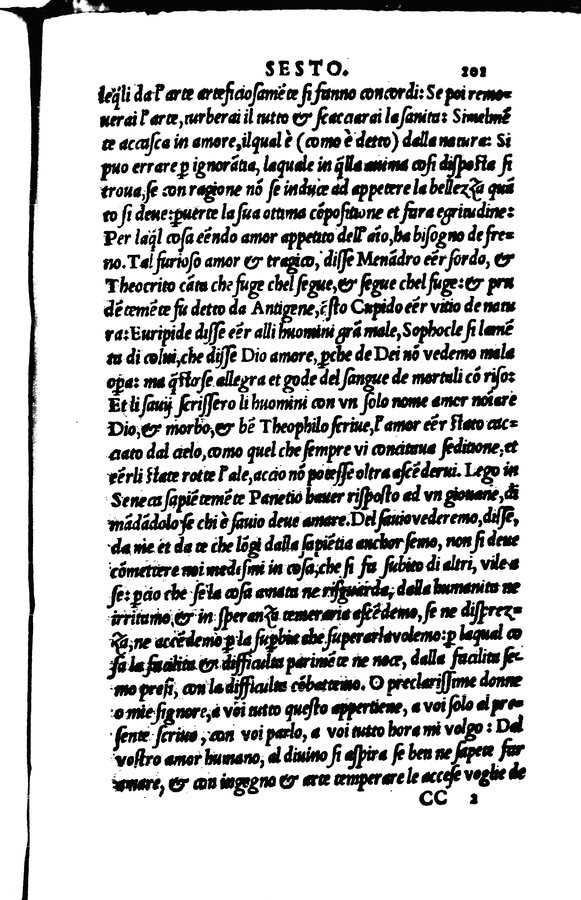 SESTO. 202
leq̃li da l'arte arteficiosamẽte si fanno concordi: Se poi remo-
uerai l'arte, turberai il tutto & scacciarai la sanita: Simelmẽ
te accasca in amore, il qual è (como è detto) dalla natura: Si
puo errare ꝑ ignorãtia, laquale in q̃lla anima cosi disposta si
troua, se con ragione nõ se induce ad appetere la bellezza quã
to si deue: ꝑuerte la sua ottima cõpositione et fara egritudine:
Per laq̃l cosa eẽndo amor appetito dell'aĩo, ha bisogno de fre-
no. Tal furioso amor & tragico, disse Menãdro eẽr sordo, &
Theocrito cãta che fuge chel segue, & segue chel fuge: & pru
dẽtemẽte fu detto da Antigene, q̃sto Cupido eẽr vitio de natu
ra: Euripide disse eẽr alli huomini grã male, Sophocle si lamẽ
ta di colui, che disse Dio amore, ꝑche de Dei nõ vedemo mala
opa: ma q̃sto se allegra et gode del sangue de mortali cõ riso:
Et li sauij scrissero li huomini con vn solo nome amor noĩare
Dio, & morbo, & bẽ Theophilo scriue, l'amor eẽr stato cac-
ciato dal cielo, como quel che sempre vi concitaua seditione, et
eẽrli state rotte l'ale, accio nõ potesse oltra ascẽderui. Lego in
Seneca sapiẽtemẽte Panetio hauer risposto ad vn giouane, di
mãdãdolo se chi è sauio deue amare. Del sauio vederemo, disse,
da me et da te che lõgi dalla sapiẽtia anchor semo, non si deue
cõmettere noi medesimi in cosa, che si fa subito di altri, vile a
se: ꝑcio che se la cosa amata ne risguarda, dalla humanita ne
irritamo, & in speranza temeraria ascẽdemo, se ne disprez-
za, ne accẽdemo ꝑ la suꝑbia che superar la volemo: ꝑ laqual co
sa la facilita & difficulta parimẽte ne noce, dalla facilita se-
mo presi, con la difficulta cõbattemo. O preclarissime donne
o mie signore, a voi tutto questo appertiene, a voi solo al pre-
sente scriuo, con voi parlo, a voi tutto hora mi volgo: Dal
vostro amor humano, al diuino si aspira se ben ne sapete far
amare, & con ingegno & arte temperare le accese voglie de
CC 2